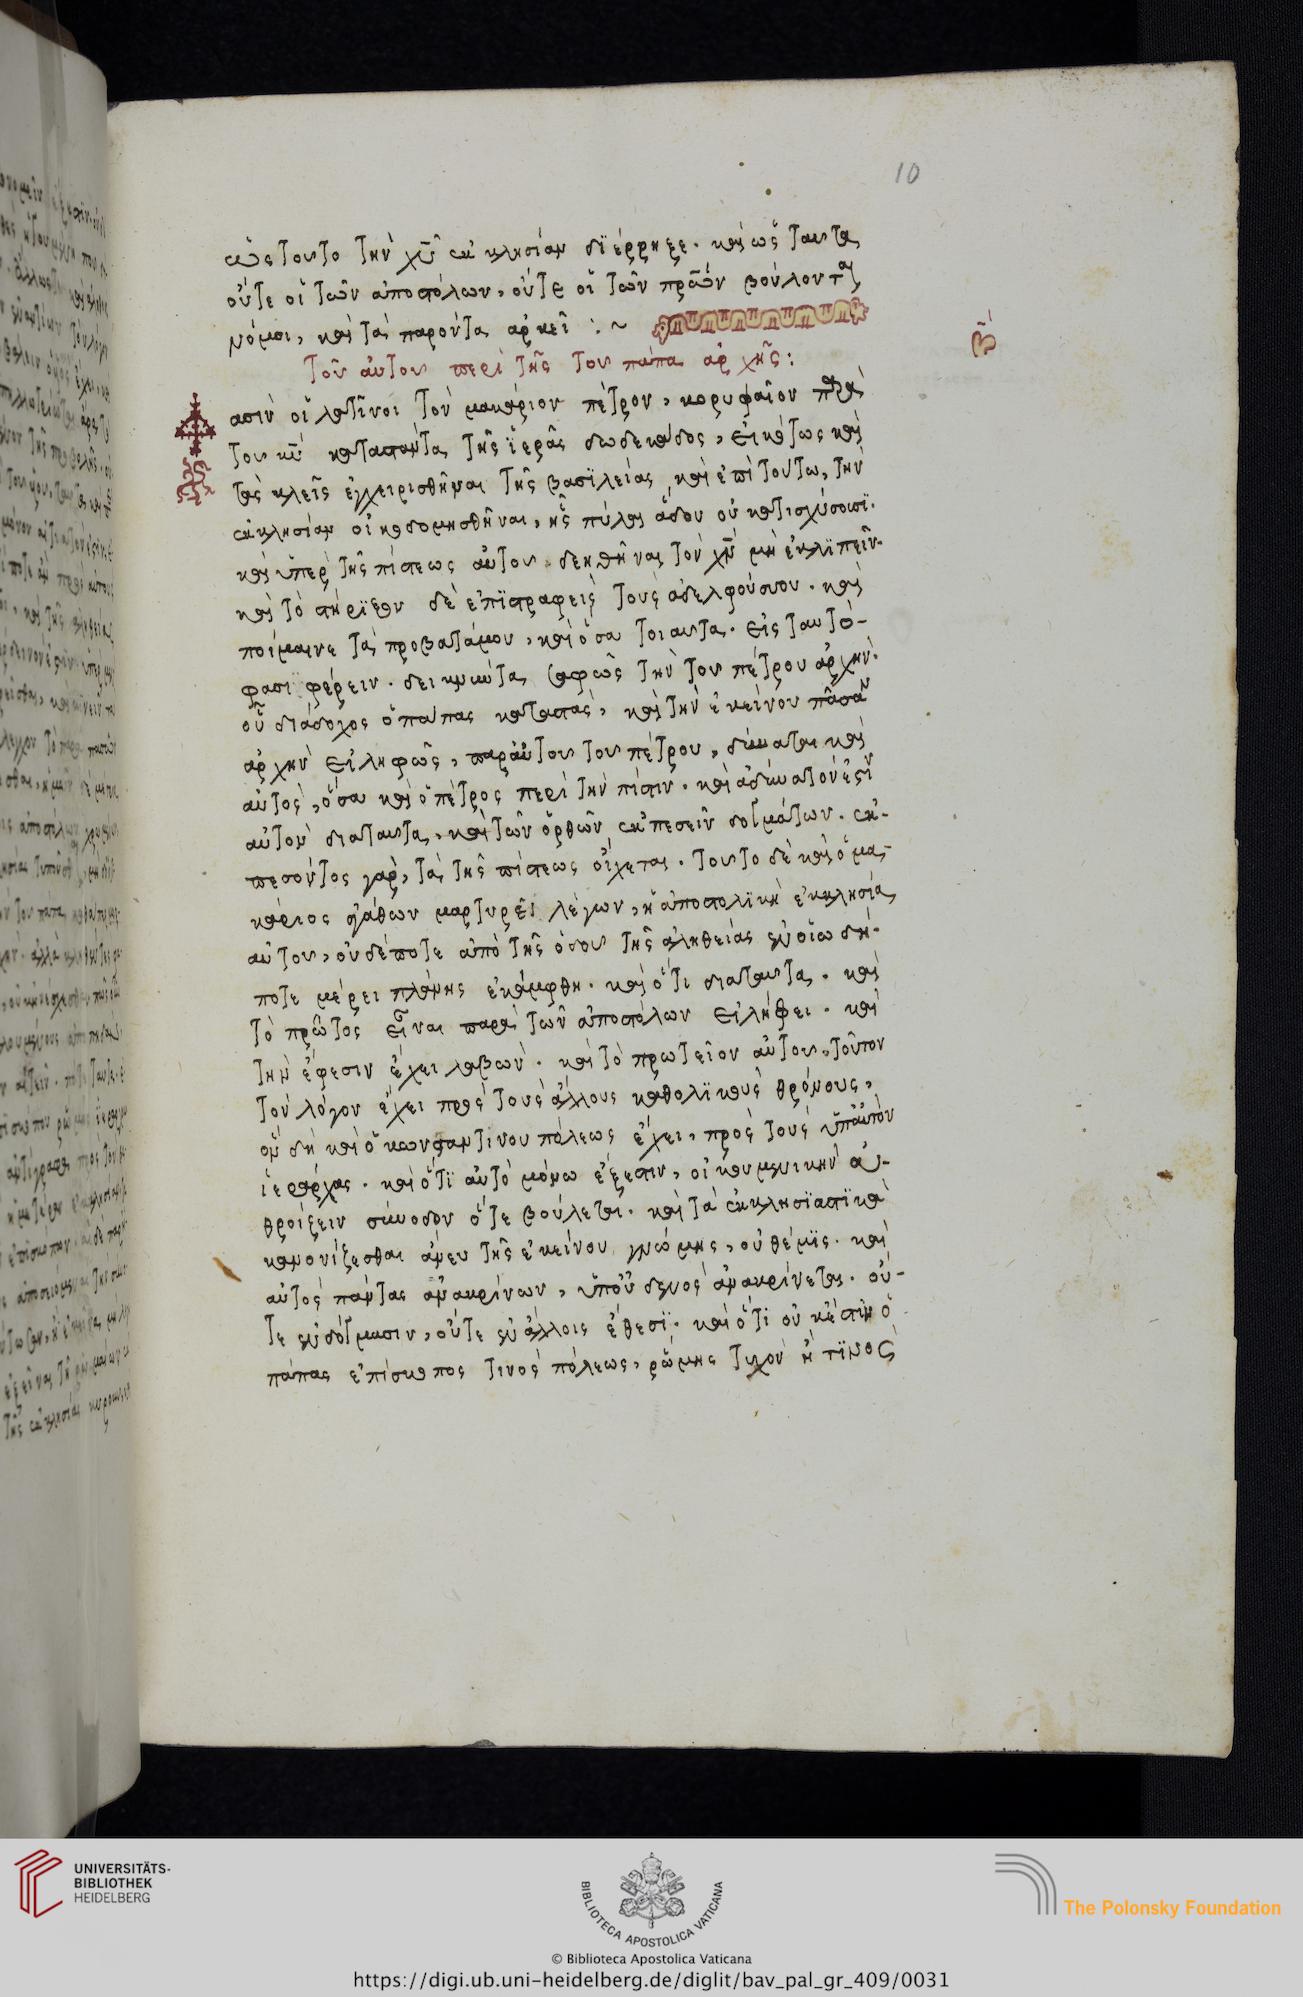 10
ὡς τοῦτο τὴν χῦ ἐκκλησίαν διέρρηξε. καὶ ὡς ταῦτα
οὔτε οἱ τῶν ἀποστόλων, οὔτε οἱ τῶν πρῶν βούλονται
νόμοι, καὶ τὰ παρόντα ἀρκεῖ : ~
Τοῦ αὐτοῦ περὶ τῆς τοῦ πάπα ἀρχῆς :
β
Φασὶν οἱ λατῖνοι τὸν μακάριον πέτρον, κορυφαῖον παρὰ
τοῦ κυ καταστάντα τῆς ἱερᾶς δωδεκάδος, εἰκότως καὶ
τὰς κλεῖς ἐγχειρισθῆναι τῆς βασιλείας, καὶ ἐπὶ τούτω, τὴν
ἐκκλησίαν οἰκοδομηθῆναι, ἧς πύλαι ἅδου οὐ κατισχύσουσι.
καὶ ὑπὲρ τῆς πίστεως αὐτοῦ δεηθῆναι τὸν χν μὴ ἐκλιπεῖν.
καὶ τὸ στήριξον δὲ ἐπιστραφεὶς τοὺς ἀδελφούς σου. καὶ
ποίμαινε τὰ πρόβατά μου, καὶ ὅσα τοιαῦτα. εἰς ταυτό-
φασι φέρειν. δεικνύντα σαφῶς τὴν τοῦ πέτρου ἀρχήν.
οὗ διάδοχος ὁ πάπας καταστὰς, καὶ τὴν ἐκείνου πᾶσαν
ἀρχὴν εἰληφὼς, παρ' αὐτοῦ τοῦ πέτρου, δύναται καὶ
αὐτὸς, ὅσα καὶ ὁ πέτρος περὶ τὴν πίστιν. καὶ ἀδύνατόν ἐστιν
αὐτὸν διαταῦτα, καὶ τῶν ὀρθῶν ἐκπεσεῖν δογμάτων. ἐκ-
πεσόντος γὰρ, τὰ τῆς πίστεως οἴχεται. τοῦτο δὲ καὶ ὁ μα-
κάριος ἀγάθων μαρτυρεῖ λέγων, ἡ ἀποστολικὴ ἐκκλησία
αὐτοῦ, οὐδέποτε ἀπὸ τῆς ὁδοῦ τῆς ἀληθείας ἐν οἵω δή-
ποτε μέρει πλάνης ἐκάμφθη. καὶ ὅτι διαταῦτα. καὶ
τὸ πρῶτος εἶναι παρὰ τῶν ἀποστόλων εἰλήφει. καὶ
τὴν ἔφεσιν ἔχει λαβὼν. καὶ τὸ πρωτεῖον αὐτοῦ, τοῦτον
τὸν λόγον ἔχει πρὸς τοὺς ἄλλους καθολικοὺς θρόνους,
ὃν δὴ καὶ ὁ κωνσταντινουπόλεως ἔχει, πρὸς τοὺς ὑπαὐτὸν
ἱεράρχας. καὶ ὅτι αὐτὸ μόνω ἔξεστιν, οἰκουμενικὴν ἀ-
θροίζειν σύνοδον ὅτε βούλεται. καὶ τὰ ἐκκλησιαστικὰ
κανονίζεσθαι ἄνευ τῆς ἐκείνου γνώμης, οὐ θέμις. καὶ
αὐτὸς πάντας ἀνακρίνων, ὑπ' οὐδενὸς ἀνακρίνεται. οὔ-
τε ἐν δόγμασιν, οὔτε ἐν ἄλλοις ἔθεσι. καὶ ὅτι οὐκ ἔστιν ὁ
πάπας ἐπίσκοπος τινὸς πόλεως, ῥώμης τυχὸν ἤ τινος
UNIVERSITÄTS-
BIBLIOTHEK
HEIDELBERG
BIBLIOTECA APOSTOLICA VATICANA
The Polonsky Foundation
© Biblioteca Apostolica Vaticana
https://digi.ub.uni-heidelberg.de/diglit/bav_pal_gr_409/0031